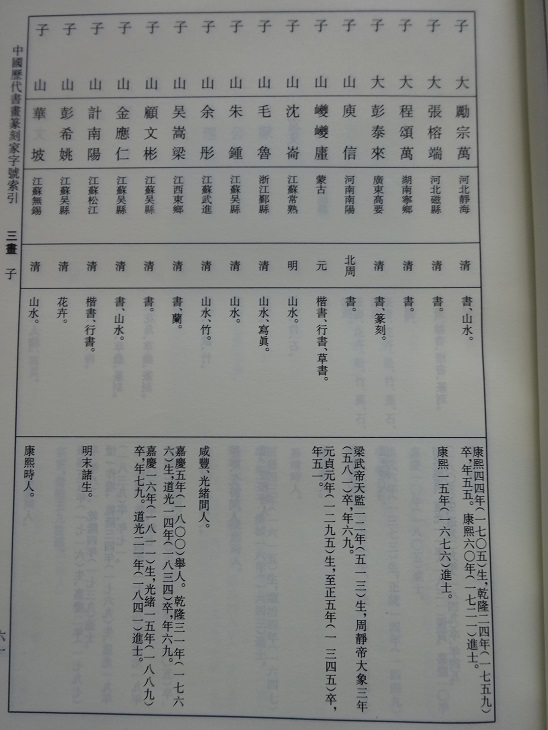 子大 勵宗萬 河北靜海 清 書、山水。 康熙四四年(一七〇五)生,乾隆二四年(一七五九)卒,年五五。康熙六〇年(一七二一)進士。
子大 張榕端 河北磁縣 清 書。 康熙一五年(一六七六)進士。
子大 程頌萬 湖南寧鄉 清 書。
子大 彭泰來 廣東高要 清 書、篆刻。
子山 庾信 河南南陽 北周 書。 梁武帝天監一二年(五一三)生,周靜帝大象三年(五八一)卒,年六九。
子山 巙巙 蒙古 元 楷書、行書、草書。 元貞元年(一二九五)生,至正五年(一三四五)卒,年五一。
子山 沈崙 江蘇常熟 明 山水。
子山 毛魯 浙江鄞縣 清 山水、寫眞。
子山 朱鍾 江蘇吳縣 清 山水。
子山 余彤 江蘇武進 清 山水、竹。 咸豐、光緒間人。
子山 吳嵩梁 江西東鄉 清 書、蘭。 嘉慶五年(一八〇〇)舉人。乾隆三一年(一七六六)生,道光一四年(一八三四)卒,年六九。
子山 顧文彬 江蘇吳縣 清 書。 嘉慶一六年(一八一一)生,光緒一五年(一八八九)卒,年七九。道光二一年(一八四一)進士。
子山 金應仁 江蘇吳縣 清 書、山水。
子山 計南陽 江蘇松江 清 楷書、行書。 明末諸生。
子山 彭希姚 江蘇吳縣 清 花卉。
子山 華坡 江蘇無錫 清 山水。 康熙時人。
中國歷代書畫篆刻家字號索引 三畫 子